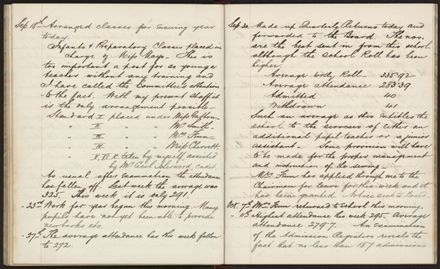 Sep 18th Arranged classes for ensuing year
today.
Infants & Preparatory Classes placed in
charge of Miss Mays. This is
too important a post for so young a
teacher without any training and
I have called the Committee's attention
to the fact. With my present staff it
is the only arrangement possible.
Standard I placed under Miss
" II " Mr Smith
" III " Mrs Funn
" IV " Miss Chevrett
V, VI & taken by myself assisted
by
As usual after examination the attendance
has fallen off. Last week the average was
325. This week it is only 291.
- 23rd Work for year began this morning. Many
pupils have not yet been able to provide
new books etc.
- 27th The average attendance has this week fallen
to 272.
Sep 30 Made up Quarterly Returns today and
forwarded to the Board. The nos.
are the best sent in from this school
although the School Roll has been
higher.
Average Weekly Roll - 335.92
Average attendance - 283.39
Admitted 60
Withdrawn 101
Such an average as this entitles the
school to the services of either an
additional pupil teacher or a junior
assistant. Some provision will have
to be made for the proper management
and instruction of the sewing.
Mrs Funn has applied through me to the
Chairman for leave for this week and it
has been granted.
Oct 7th Mrs Funn returned to school this morning.
Highest attendance this week 295. Average
attendance 278.7. An examination
of the Admission Register reveals the
fact that no less than 157 admissions